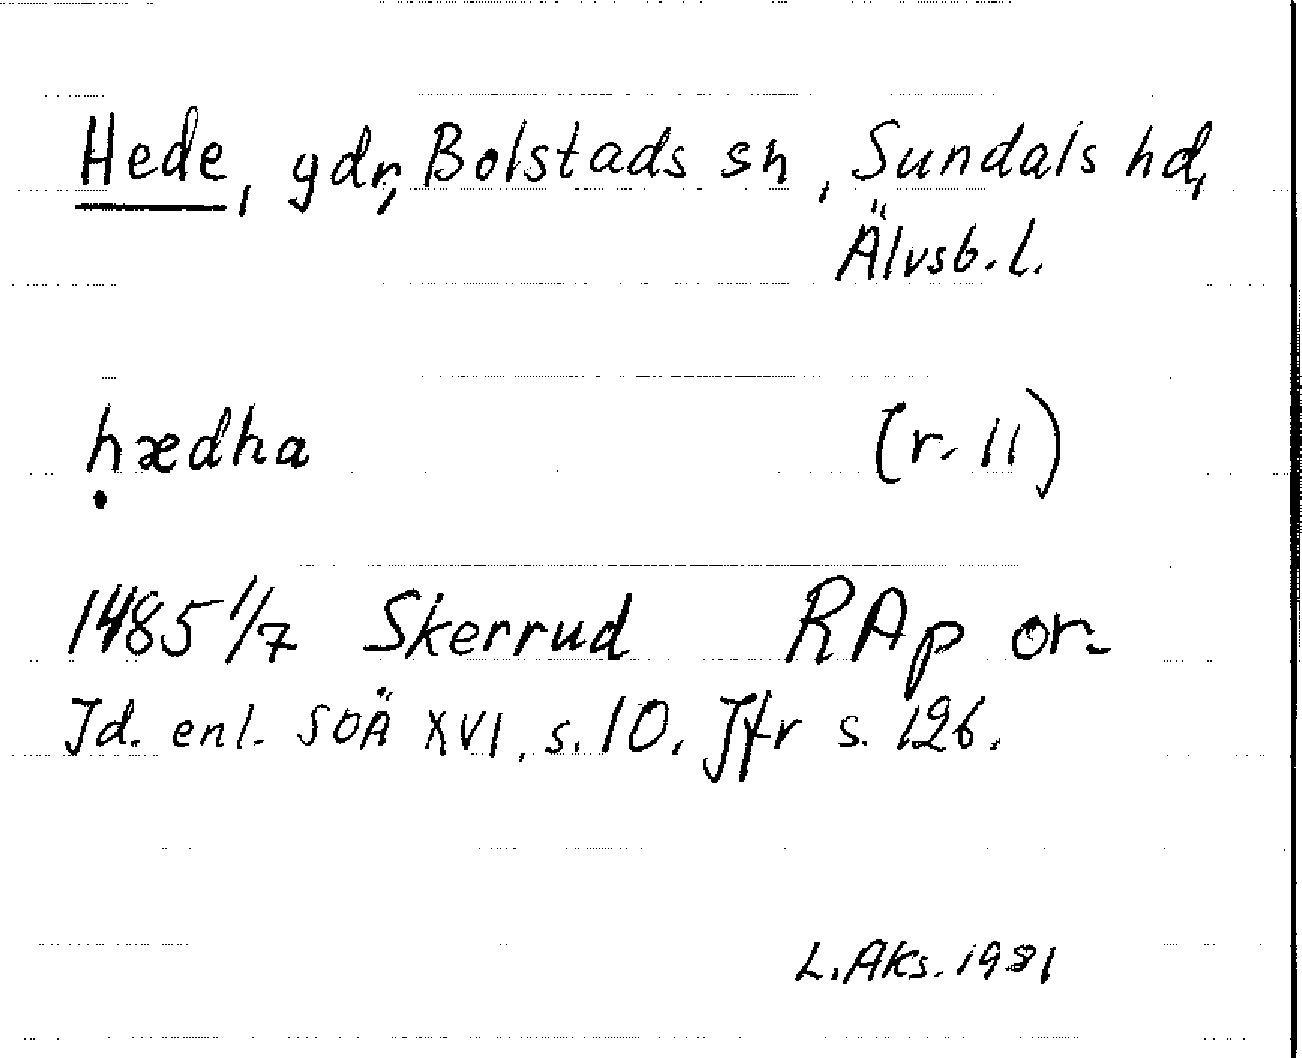 Hede, gdr, Bolstads sn, Sundals hd,
Älvsb. l.
hædha (r. 11)
1485 1/7 Skerrud RAp or.
Id. enl. SOÄ XVI, s. 10. Jfr s. 126.
L. Aks. 1981